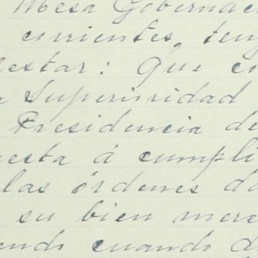 Mesa Gobernac
corrientes, ten
estar: Que c
Superioridad
Presidencia de
esta á cumpli
las órdenes d
su bien mere
endo cuando d